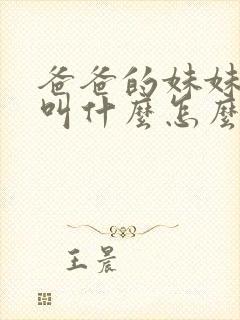 爸爸的妹妹
叫什麼怎麼
王晨